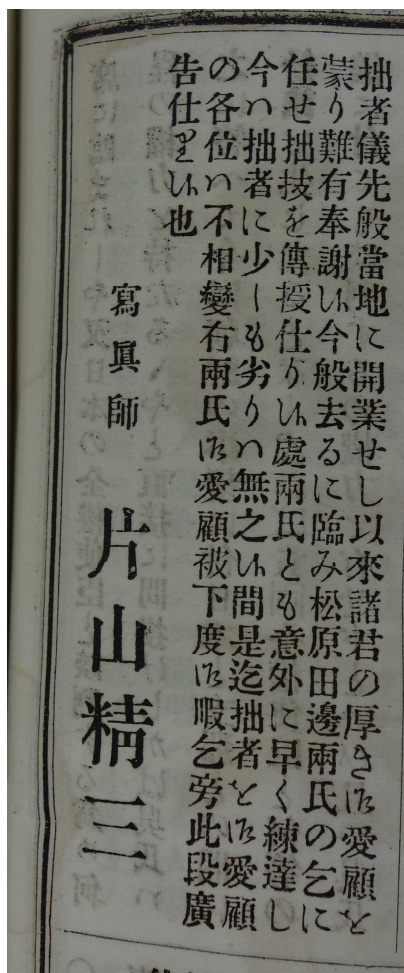 拙者儀先般當地に開業せし以來諸君の厚き御愛顧を
蒙り難有奉謝候今般去るに臨み松原田邊兩氏の乞に
任せ拙技を傳授仕り候處兩氏とも意外に早く練達し
今ハ拙者に少しも劣りハ無之候間是迄拙者を御愛顧
の各位ハ不相變右兩氏御愛顧被下度御暇乞旁此段廣
告仕候也
寫眞師
片山精三